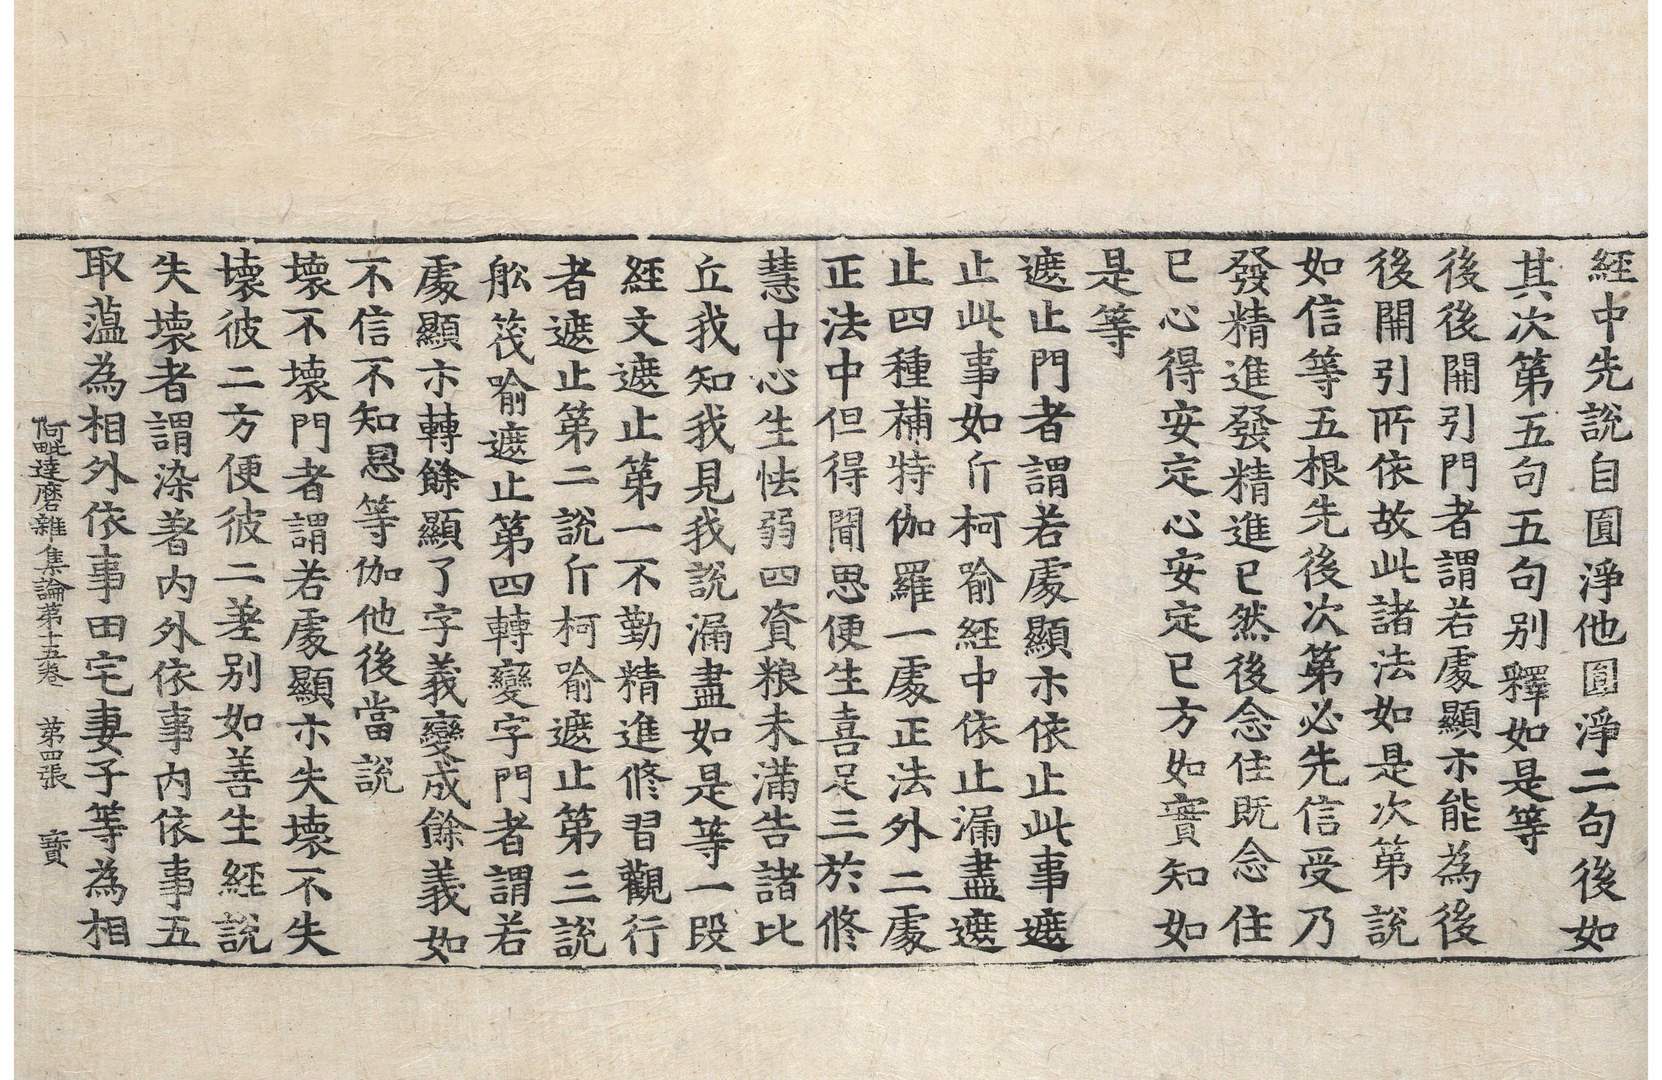 經中先說自圓淨他圓淨二句後如
其次第五句五句別釋如是等
後後開引門者謂若處顯示能為後
後開引所依故此諸法如是次第說
如信等五根先後次第必先信受乃
發精進發精進已然後念住既念住
已心得安定心安定已方如實知如
是等
遮止門者謂若處顯示依止此事遮
止此事如斤柯喻經中依止漏盡遮
止四種補特伽羅一處正法外二處
正法中但得聞思便生喜足三於修
慧中心生怯弱四資粮未滿告諸比
丘我知我見我說漏盡如是等一段
經文遮止第一不勤精進修習觀行
者遮止第二說斤柯喻遮止第三說
舩筏喻遮止第四轉變字門者謂若
處顯示轉餘顯了字義變成餘義如
不信不知恩等伽他後當說
壞不壞門者謂若處顯示失壞不失
壞彼二方便彼二差別如善生經說
失壞者謂染著內外依事內依事五
取蘊為相外依事田宅妻子等為相
阿毗達磨雜集論第十五卷 第四張 寶